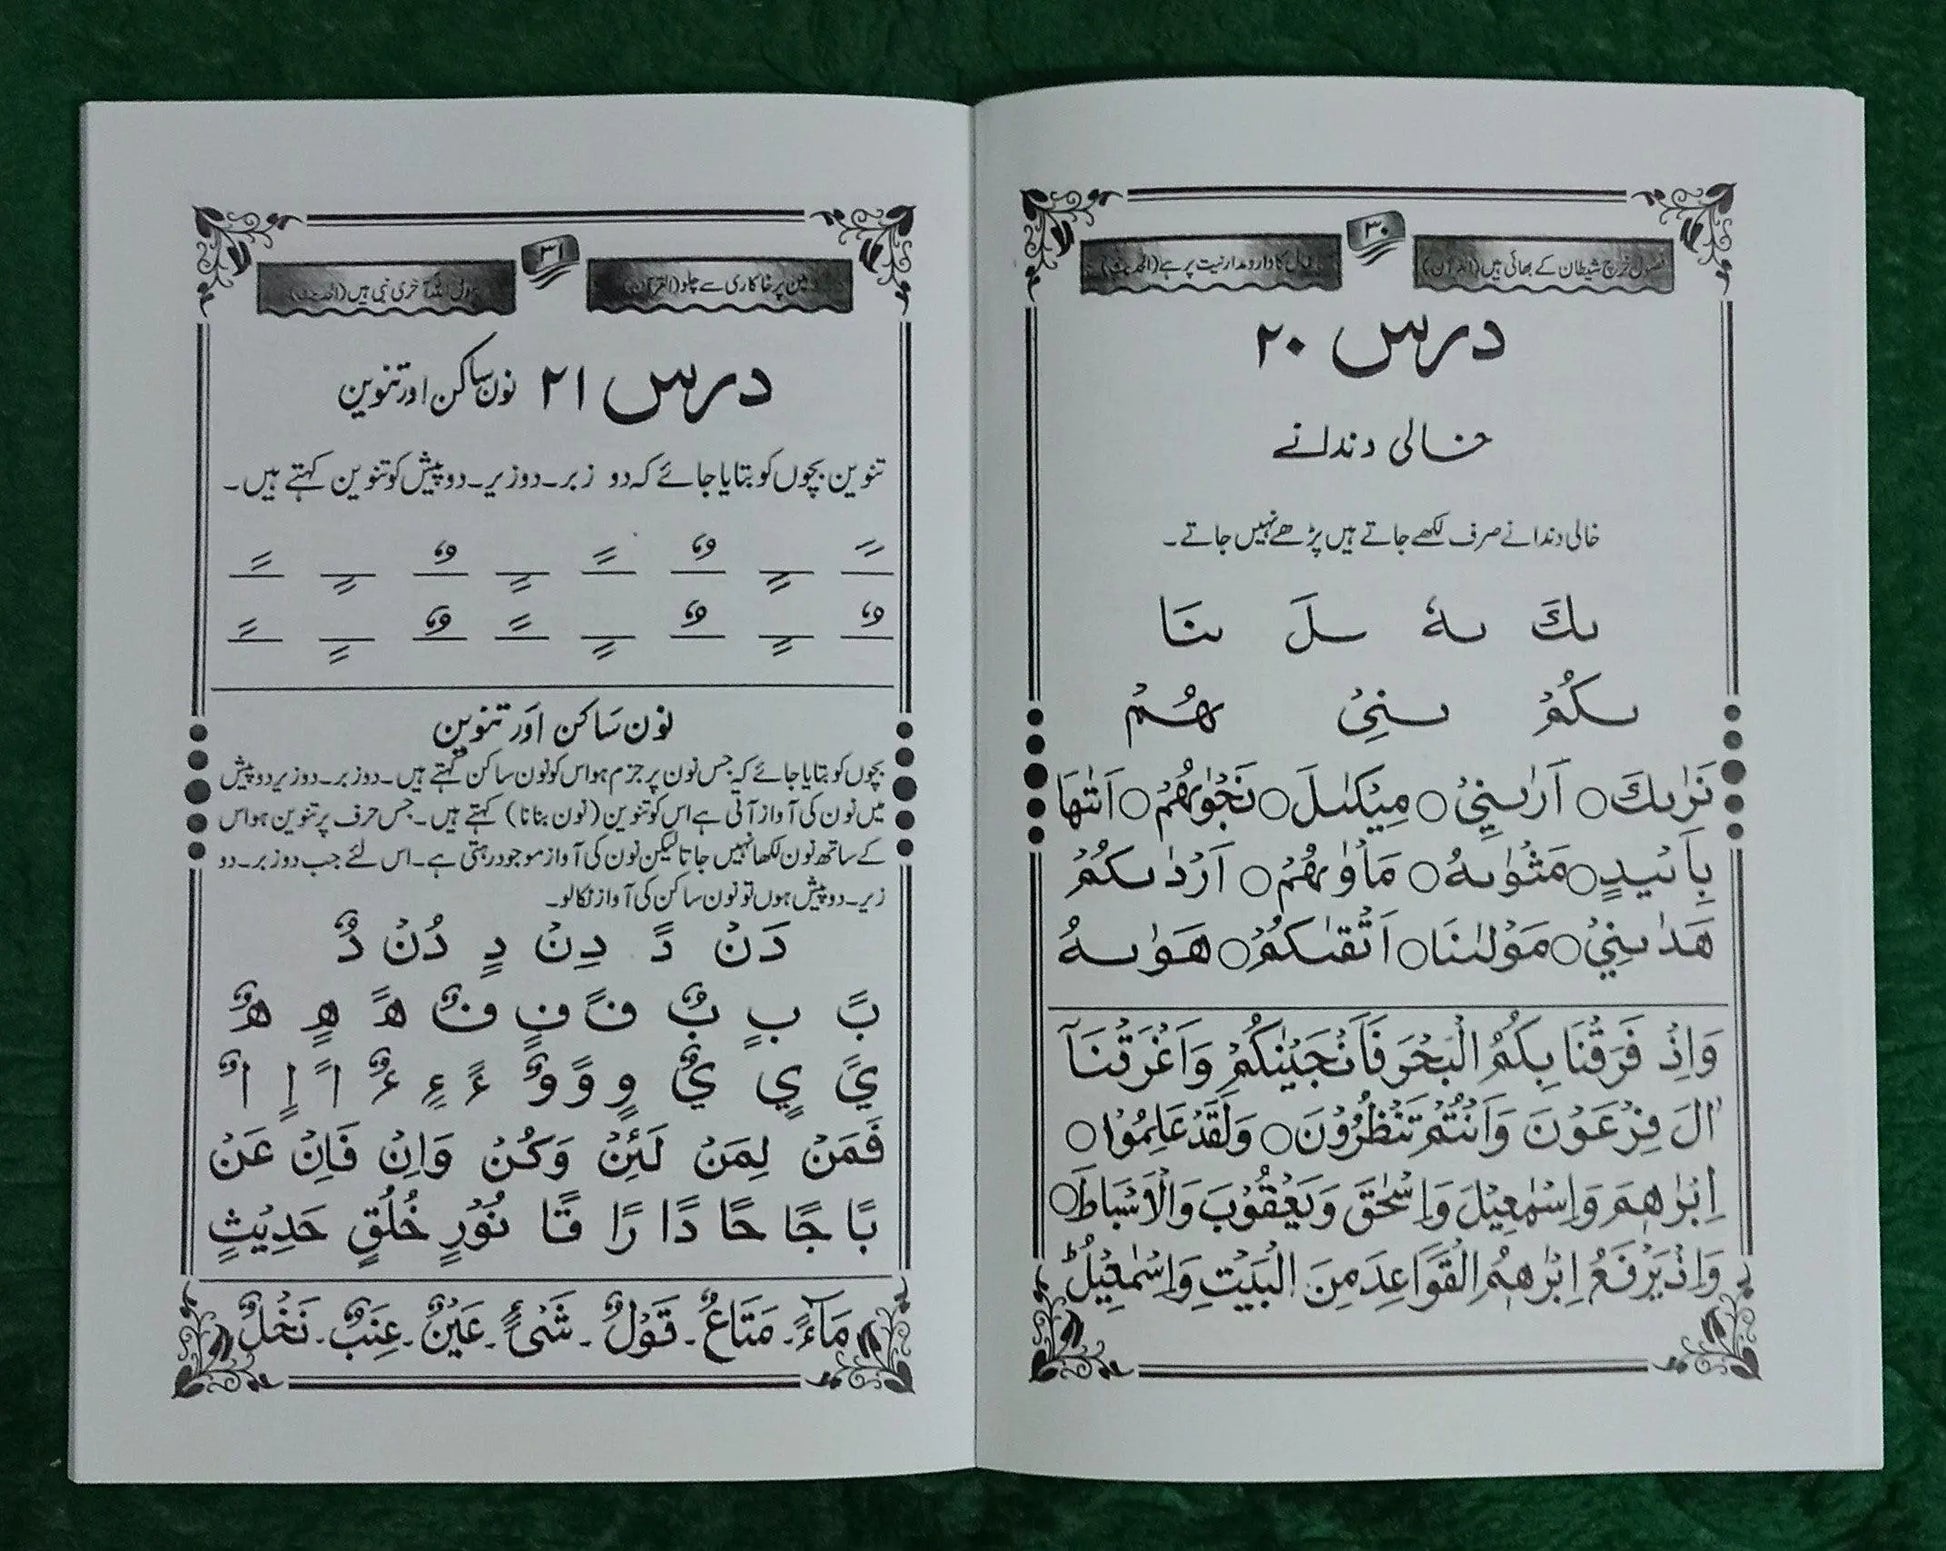 ۳۰
فضول خرچ شیطان کے بھائی ہیں (القرآن)
کا دارومدار نیت پر ہے (الحدیث)
درس ۲۰
خالی دندانے
خالی دندانے صرف لکھے جاتے ہیں پڑھے نہیں جاتے۔
ىكَ ىهُ ىلَ ىنَا
ىكُمْ ىنِيْ هُمْ
نَرٰىكَ ○ اَرٰىنِيْ ○ مِيْكٰىلَ ○ نَجْوٰىهُمْ ○ اَتٰىهَا
بِاَىْيدٍ ○ مَثْوٰىهُ ○ مَاْوٰىهُمْ ○ اَرْدٰىكُمْ
هَدٰىنِيْ ○ مَوْلٰىنَا ○ اَتْقٰىكُمْ ○ هَوٰىهُ
وَاِذْ فَرَقْنَا بِكُمُ الْبَحْرَ فَاَنْجَيْنٰكُمْ وَاَغْرَقْنَآ
اٰلَ فِرْعَوْنَ وَاَنْتُمْ تَنْظُرُوْنَ ○ وَلَقَدْ عَلِمُوْا ○
اِبْرٰهٖمَ وَاِسْمٰعِيْلَ وَاِسْحٰقَ وَيَعْقُوْبَ وَالْاَسْبَاطَ ○
وَاِذْ يَرْفَعُ اِبْرٰهٖمُ الْقَوَاعِدَ مِنَ الْبَيْتِ وَاِسْمٰعِيْلُ ؕ
۳۱
پر خاکاری سے چلو (القرآن)
آخری نبی ہیں (الحدیث)
درس ۲۱ نون ساکن اور تنوین
تنوین بچوں کو بتایا جائے کہ دو زبر۔ دو زیر۔ دو پیش کو تنوین کہتے ہیں۔
ـًـ ـٍـ ـٌـ ـًـ ـٍـ ـٌـ ـٍـ ـًـ
ـٌـ ـٍـ ـٌـ ـٍـ ـًـ ـٌـ ـٍـ ـًـ
نون ساکن اور تنوین
بچوں کو بتایا جائے کہ جس نون پر جزم ہو اس کو نون ساکن کہتے ہیں۔ دو زبر۔ دو زیر دو پیش
میں نون کی آواز آتی ہے اس کو تنوین (نون بنانا) کہتے ہیں۔ جس حرف پر تنوین ہو اس
کے ساتھ نون لکھا نہیں جاتا لیکن نون کی آواز موجود رہتی ہے۔ اس لئے جب دو زبر۔ دو
زیر۔ دو پیش ہوں تو نون ساکن کی آواز نکالو۔
دَنْ دً دِنْ دٍ دُنْ دٌ
بً بٍ بٌ نً نٍ نٌ هً هٍ هٌ
يً يٍ يٌ وٍ وً وٌ ءً ءٍ ءٌ اً اٍ اٌ
فَمَنْ لِمَنْ لَئِنْ وَكُنْ وَاِنْ فَاِنْ عَنْ
بًا جًا حًا دًا رًا قًا نُوْرٍ خُلُقٍ حَدِيْثٍ
مَآءً۔ مَتَاعٌ۔ قَوْلٌ۔ شَىْءٍ۔ عَيْنٌ۔ عِنَبٌ۔ نَخْلٌ